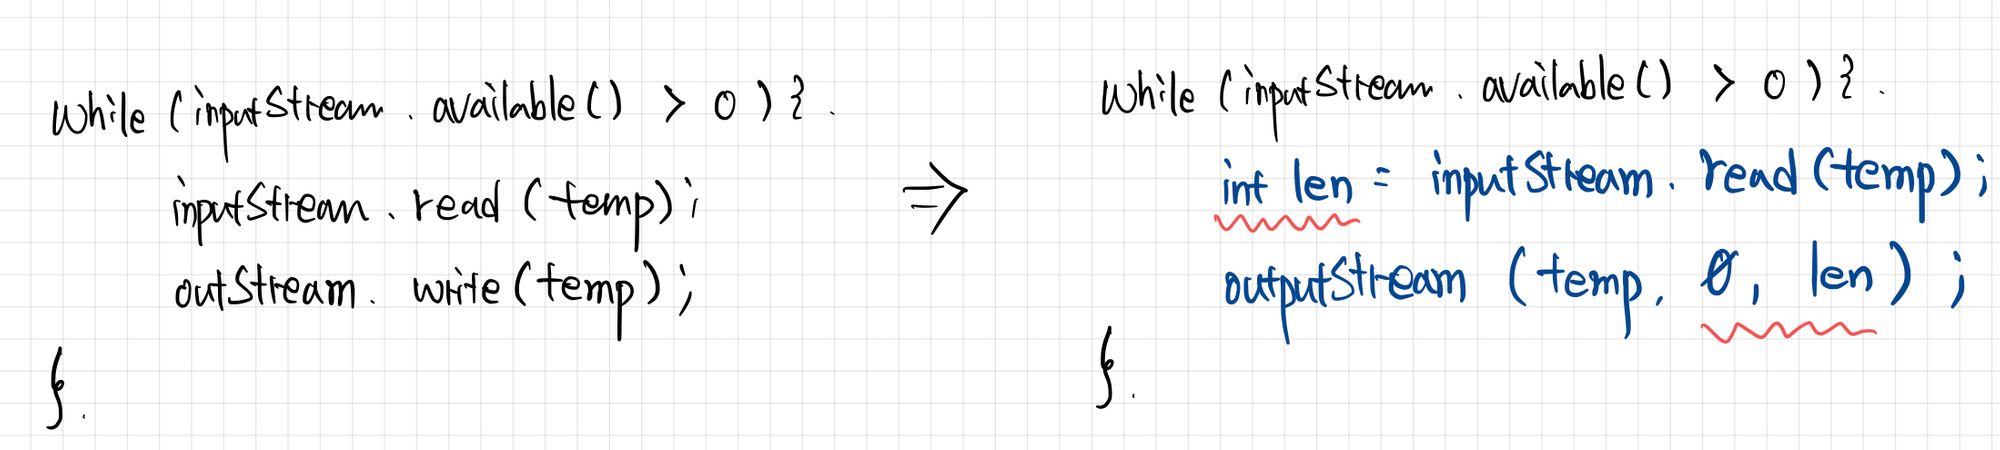 while (inputStream . available() > 0 ) {.
inputStream . read (temp);
outStream . write (temp);
}.
⇒
while (inputStream . available() > 0 ) {.
int len = inputStream . read (temp);
outputStream (temp, 0, len) ;
}.